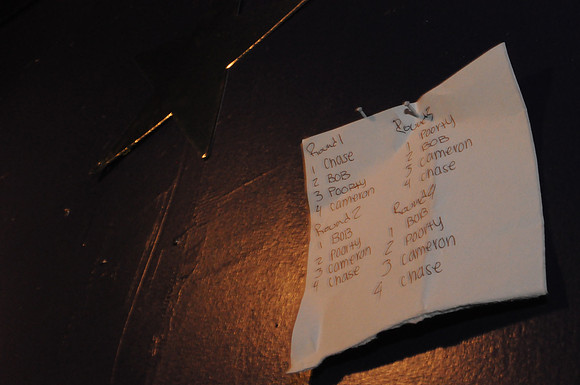 Round 1
1 Chase
2 BOB
3 POORTY
4 Cameron
Round 2
1 BOB
2 Poorty
3 Cameron
4 Chase
Round
1 Poorty
2 BOB
3 Cameron
4 Chase
Round
1 BOB
2 Poorty
3 Cameron
4 Chase